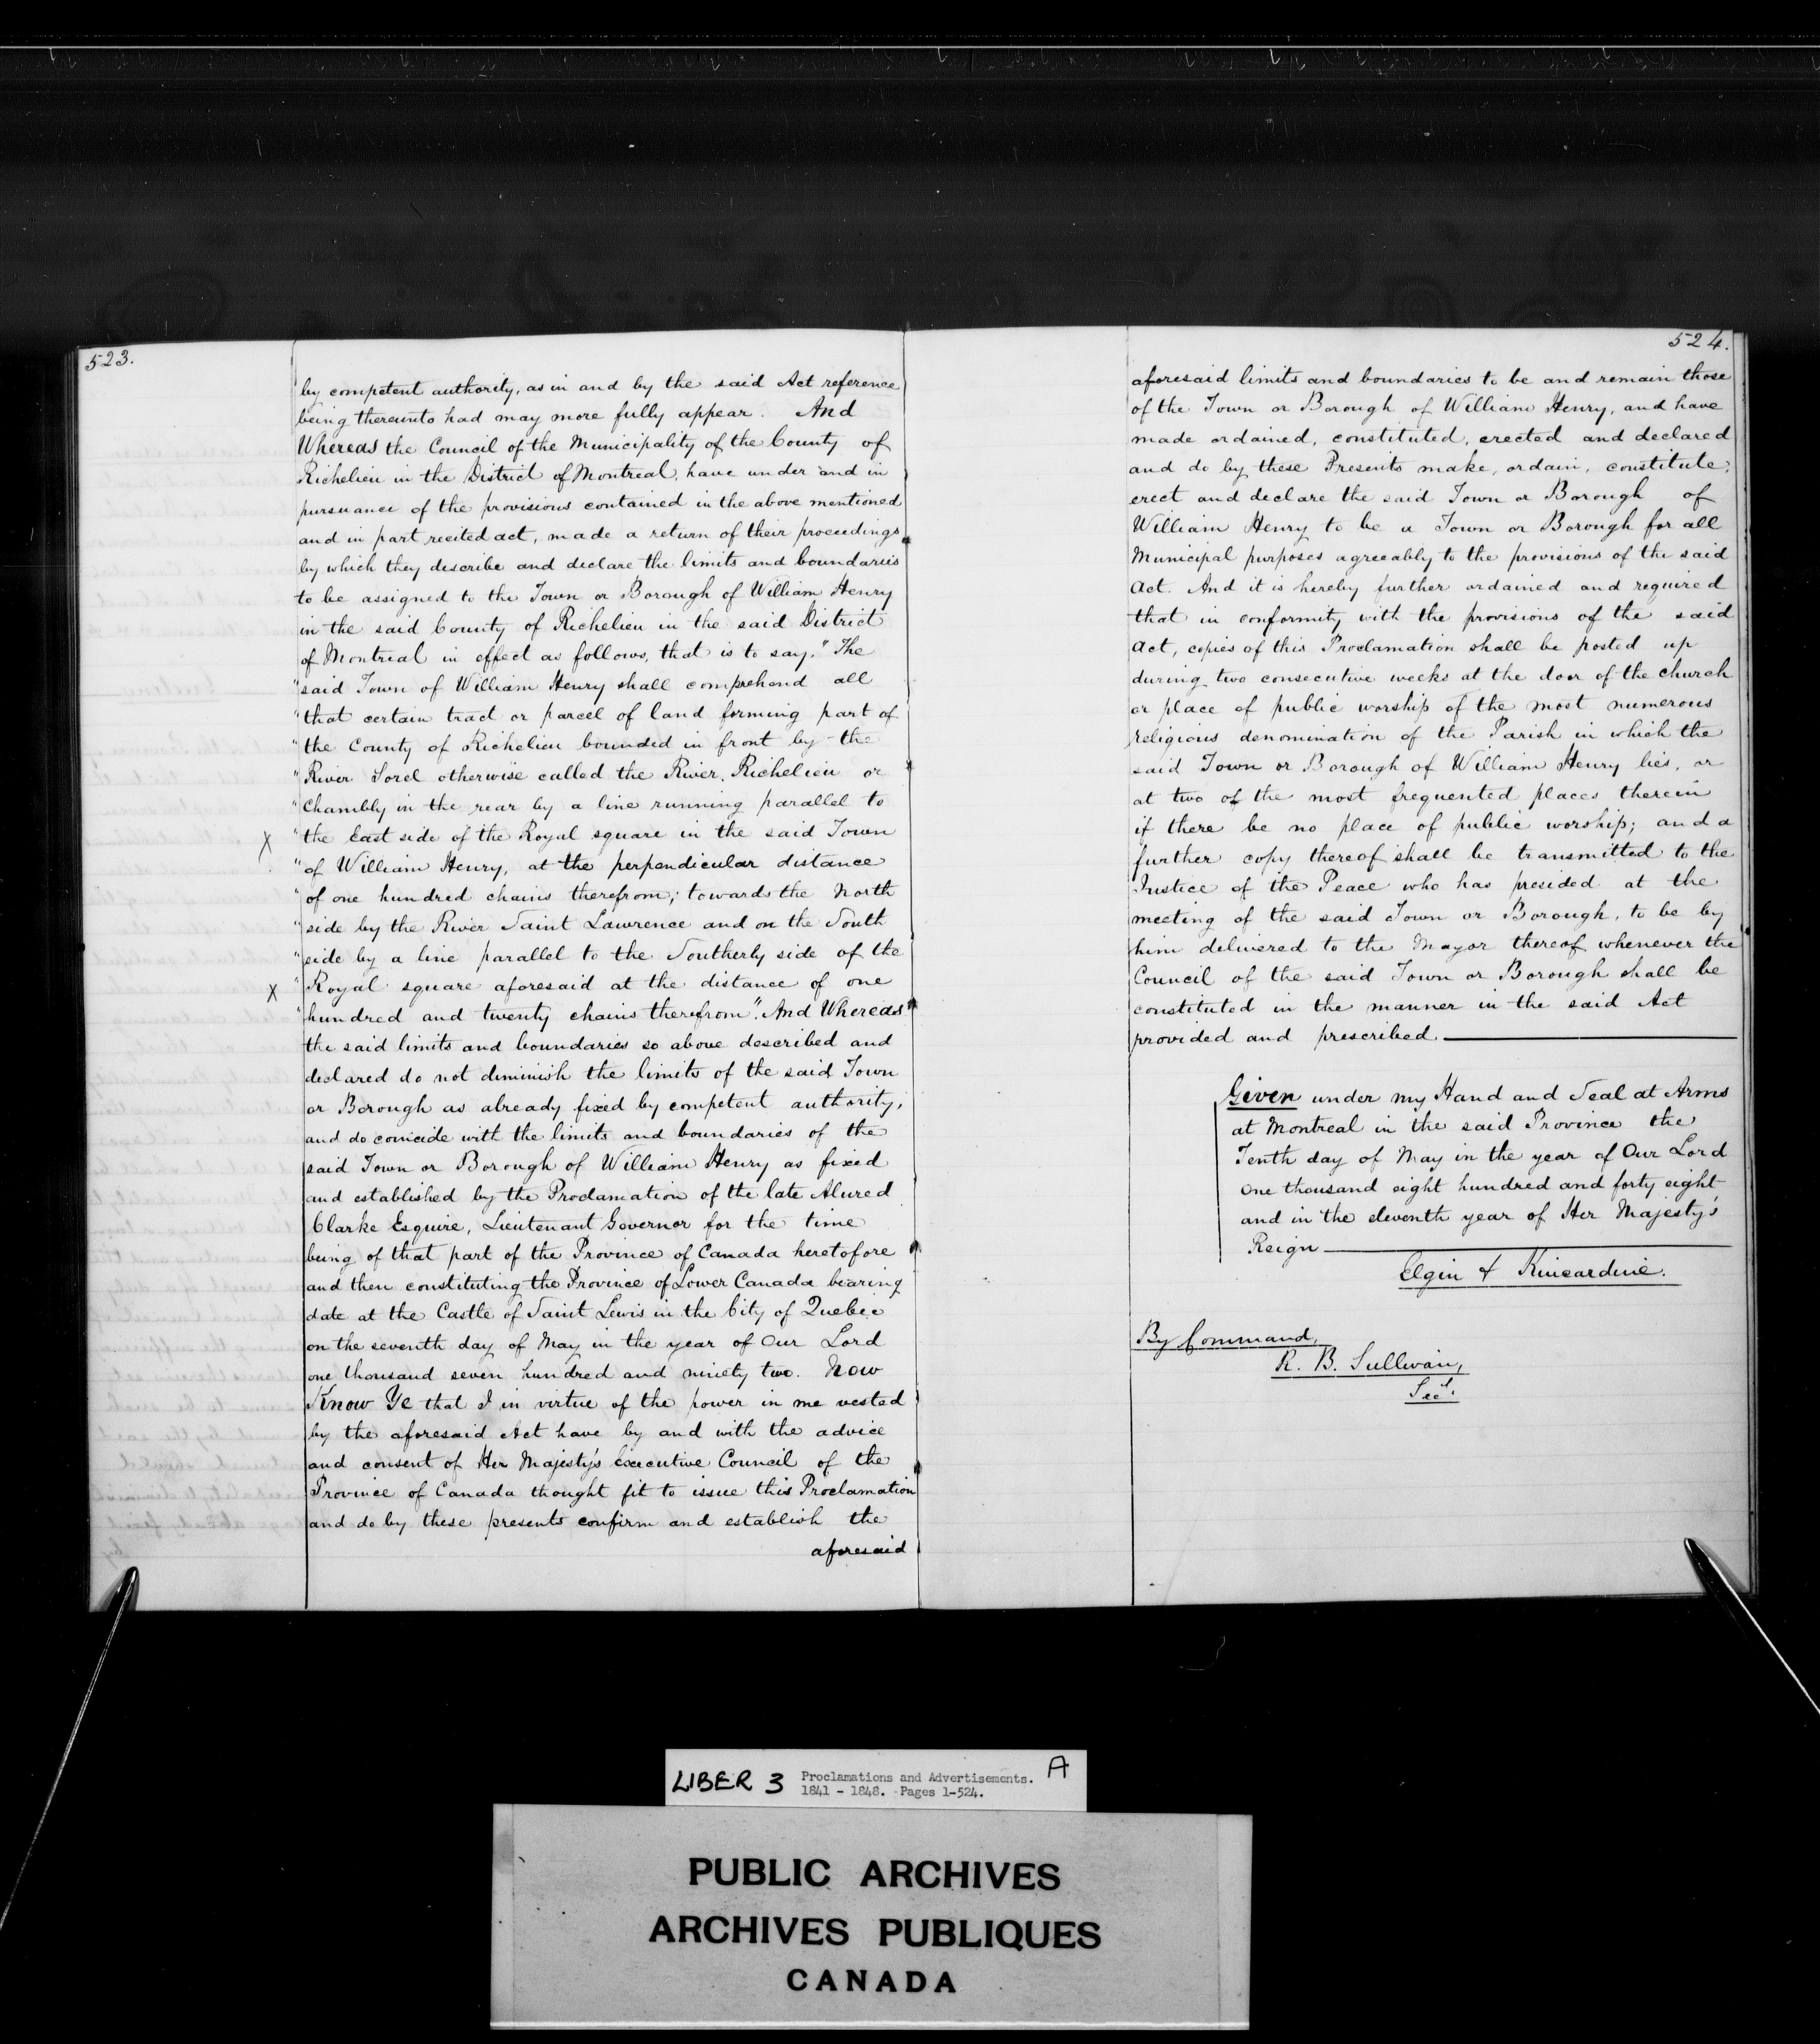 523.
by competent authority, as in and by the said Act reference
being thereunto had may more fully appear. And
Whereas the Council of the Municipality of the County of
Richelieu in the District of Montreal, have under and in
pursuance of the provisions contained in the above mentioned
and in part recited act, made a return of their proceedings
by which they describe and declare the limits and boundaries
to be assigned to the Town or Borough of William Henry
in the said County of Richelieu in the said District
of Montreal in effect as follows, that is to say, "The
"said Town of William Henry shall comprehend all
"that certain tract or parcel of land forming part of
"the County of Richelieu bounded in front by the
"River Sorel otherwise called the River Richelieu or
"Chambly in the rear by a line running parallel to
X "the East side of the Royal square in the said Town
"of William Henry, at the perpendicular distance
"of one hundred chains therefrom; towards the North
"side by the River Saint Lawrence and on the South
"side by a line parallel to the Southerly side of the
X "Royal square aforesaid at the distance of one
"hundred and twenty chains therefrom". And Whereas
the said limits and boundaries so above described and
declared do not diminish the limits of the said Town
or Borough as already fixed by competent authority,
and do conicide with the limits and boundaries of the
said Town or Borough of William Henry as fixed
and established by the Proclamation of the late Alured
Clarke Esquire, Lieutenant Governor for the time
being of that part of the Province of Canada heretofore
and then constituting the Province of Lower Canada bearing
date at the Castle of Saint Lewis in the City of Quebec
on the seventh day of May in the year of Our Lord
one thousand seven hundred and ninety two. Now
Know Ye that I in virtue of the power in me vested
by the aforesaid Act have by and with the advice
and consent of Her Majesty's Executive Council of the
Province of Canada thought fit to issue this Proclamation
and do by these presents confirm and establish the
aforesaid
524.
aforesaid limits and boundaries to be and remain those
of the Town or Borough of William Henry, and have
made ordained, constituted, erected and declared
and do by these Presents make, ordain, constitute,
erect and declare the said Town or Borough of
William Henry to be a Town or Borough for all
Municipal purposes agreeably to the provisions of the said
Act. And it is hereby further ordained and required
that in conformity with the provisions of the said
Act, copies of this Proclamation shall be posted up
during two consecutive weeks at the door of the church
or place of public worship of the most numerous
religious denomination of the Parish in which the
said Town or Borough of William Henry lies, or
at two of the most frequented places therein
if there be no place of public worship; and a
further copy thereof shall be transmitted to the
Justice of the Peace who has presided at the
meeting of the said Town or Borough, to be by
him delivered to the Mayor thereof whenever the
Council of the said Town or Borough shall be
constituted in the manner in the said Act
provided and prescribed.
Given under my Hand and Seal at Arms
at Montreal in the said Province the
Tenth day of May in the year of Our Lord
One thousand eight hundred and forty eight
and in the eleventh year of Her Majesty's
Reign
Elgin & Kincardine.
By Command,
R. B. Sullivan,
Secy.
LIBER 3 Proclamations and Advertisements. A
1841 - 1848. Pages 1-524.
PUBLIC ARCHIVES
ARCHIVES PUBLIQUES
CANADA